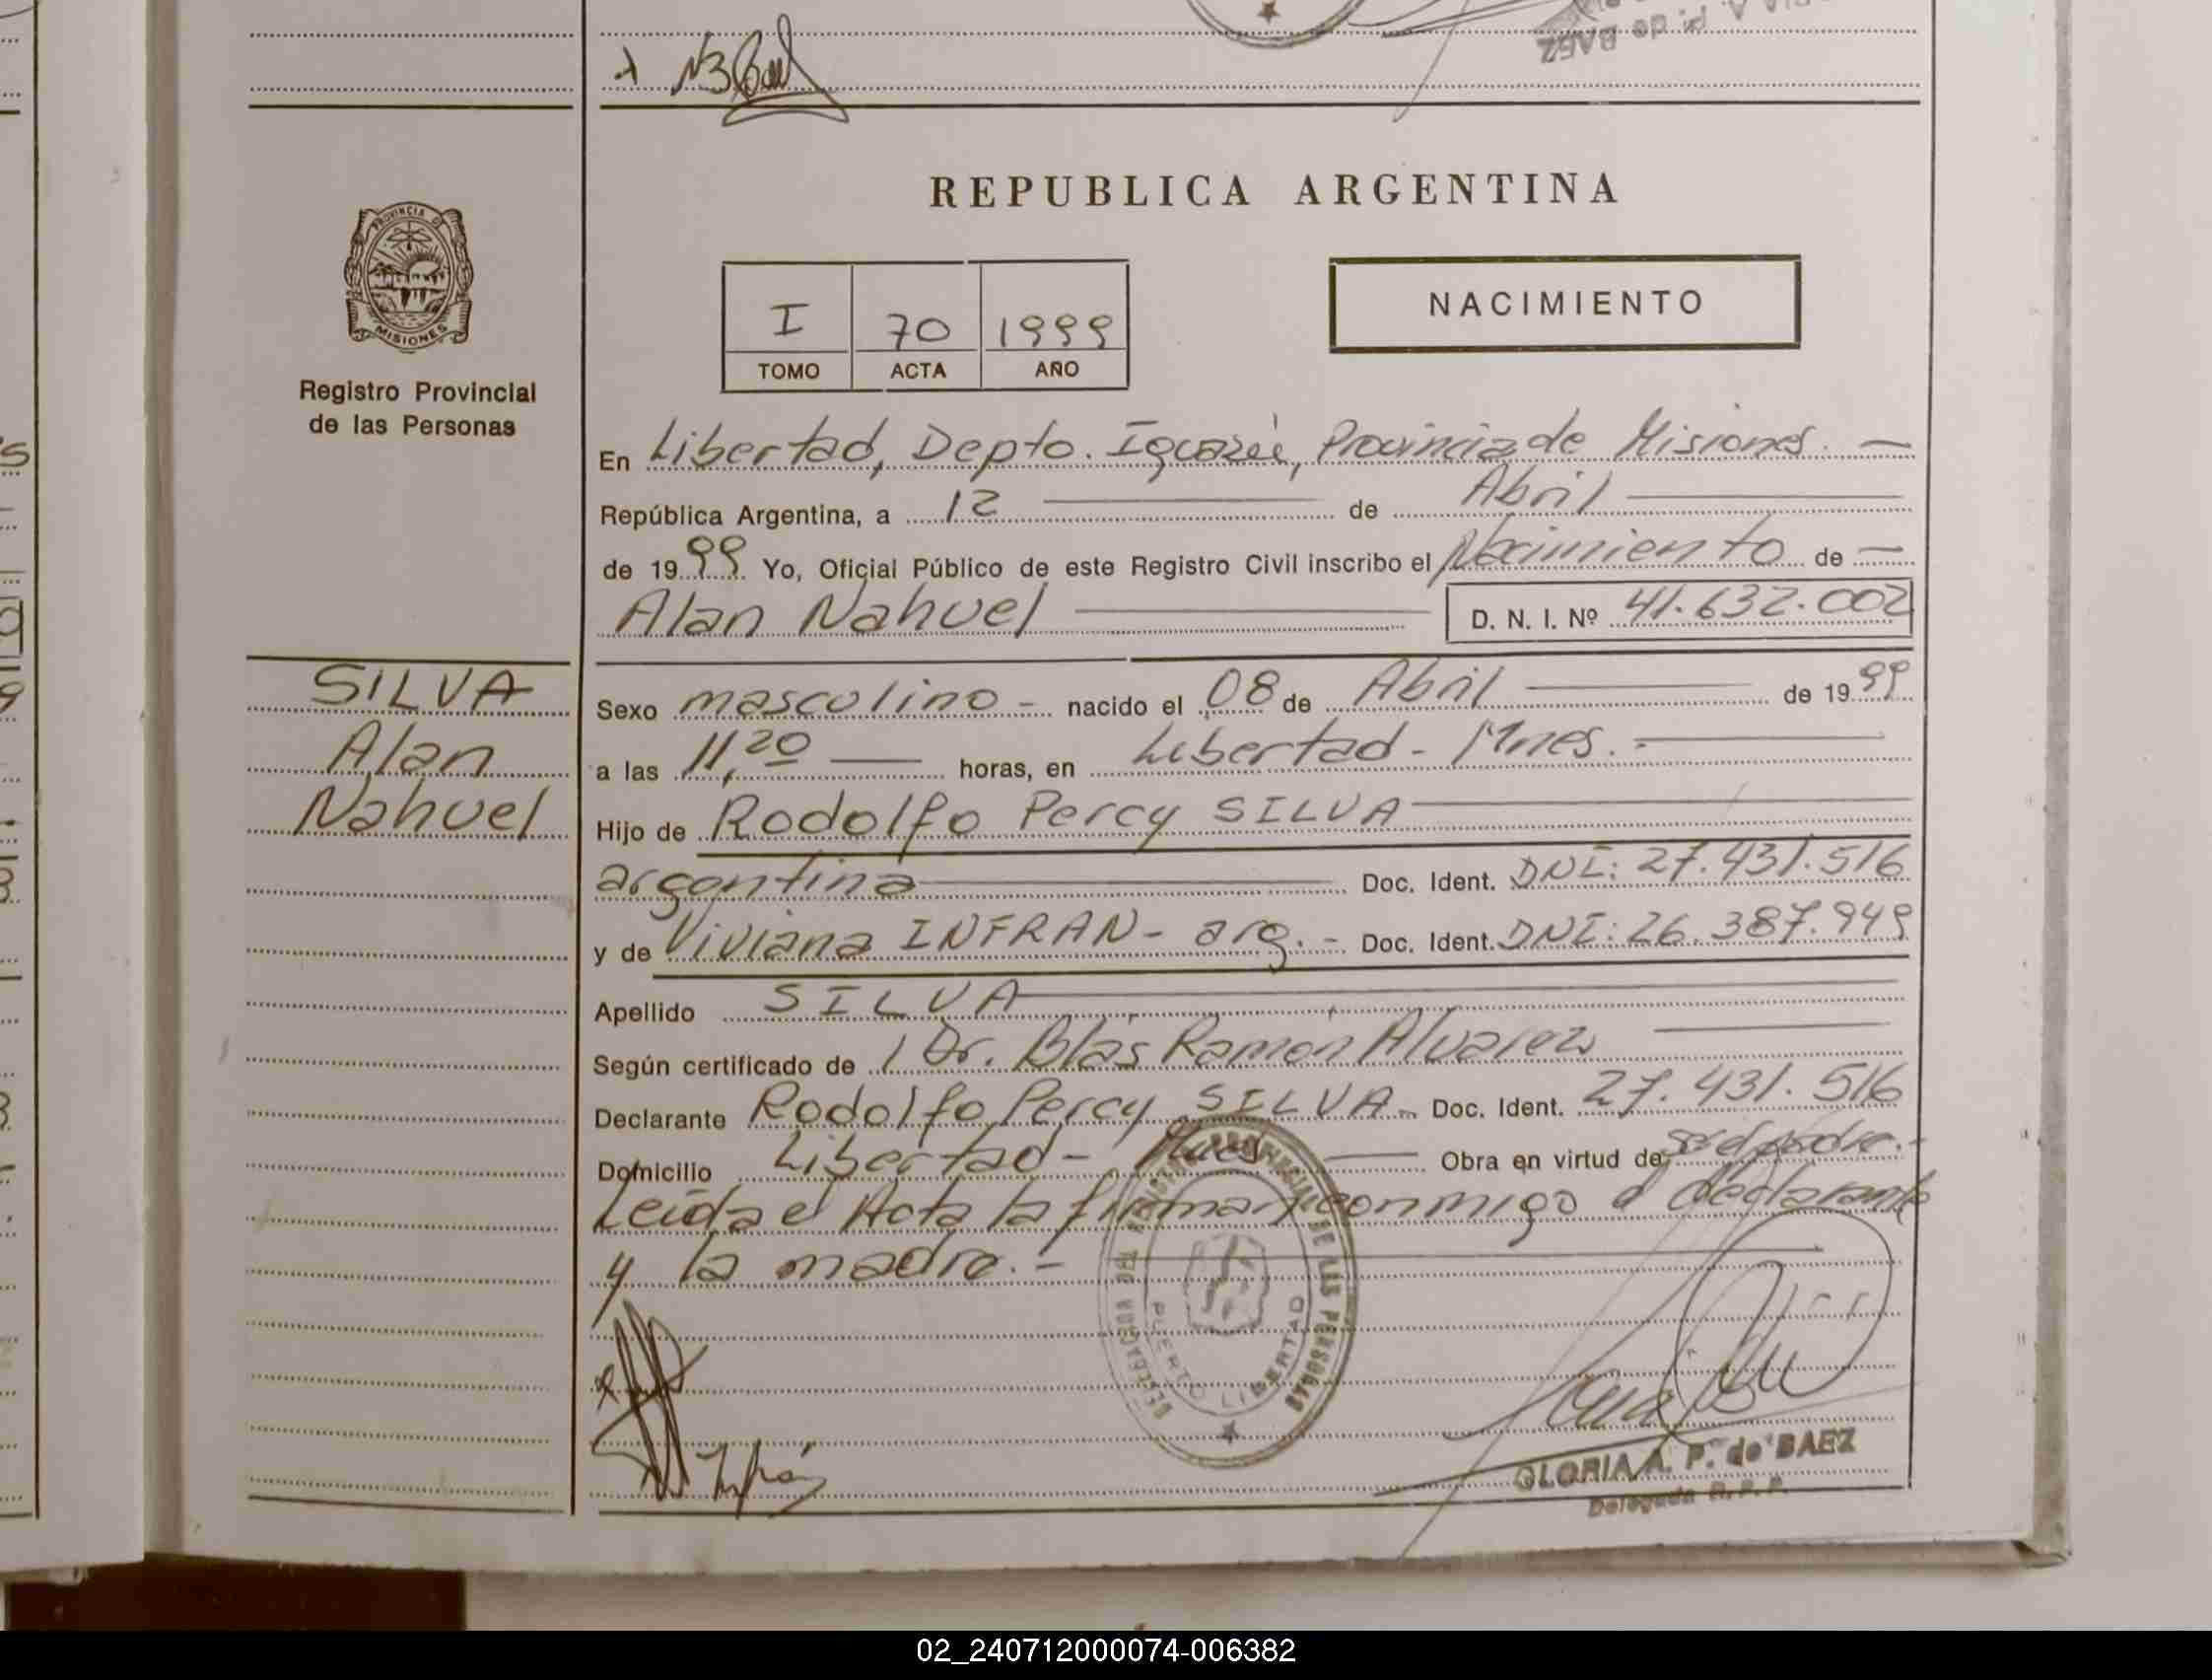 P. de BAEZ
REPUBLICA ARGENTINA
PROVINCIA DE
MISIONES
Registro Provincial
de las Personas
I 70 1999
TOMO ACTA AÑO
NACIMIENTO
En Libertad, Depto. Iguazú, Provincia de Misiones. —
República Argentina, a 12 — de Abril —
de 1999 Yo, Oficial Público de este Registro Civil inscribo el Nacimiento de —
Alan Nahuel — D. N. I. Nº 41.632.002
SILVA
Alan
Nahuel
Sexo masculino - nacido el 08 de Abril — de 1999
a las 11,20 — horas, en Libertad - Mnes. -
Hijo de Rodolfo Percy SILVA
argentina — Doc. Ident. DNI: 27.431.516
y de Viviana INFRAN - arg. - Doc. Ident. DNI: 26.387.949
Apellido SILVA
Según certificado de / Dr. Blás Ramón Alvarez
Declarante Rodolfo Percy SILVA - Doc. Ident. 27.431.516
Domicilio Libertad - Mnes — Obra en virtud de ser el padre. -
Leída el Acta la firman conmigo el declarante
y la madre. -
DELEGACION DEL REGISTRO PROVINCIAL DE LAS PERSONAS
PUERTO LIBERTAD
Infrán
GLORIA A. P. de BAEZ
Delegada R. P. P.
02_240712000074-006382